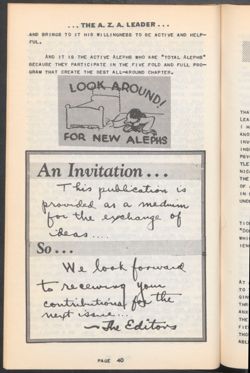 ...THE A. Z. A. LEADER...
AND BRINGS TO IT HIS WILLINGNESS TO BE ACTIVE AND HELP-
FUL.
AND IT IS THE ACTIVE ALEPHS WHO ARE "TOTAL ALEPHS"
BECAUSE THEY PARTICIPATE IN THE FIVE FOLD AND FULL PRO-
GRAM THAT CREATE THE BEST ALL-AROUND CHAPTER.
LOOK AROUND!
FOR NEW ALEPHS
An Invitation...
This publication is
provided as a medium
for the exchange of
ideas....
So...
We look forward
to receiving your
contributions for the
next issue...
—The Editors
PAGE 40